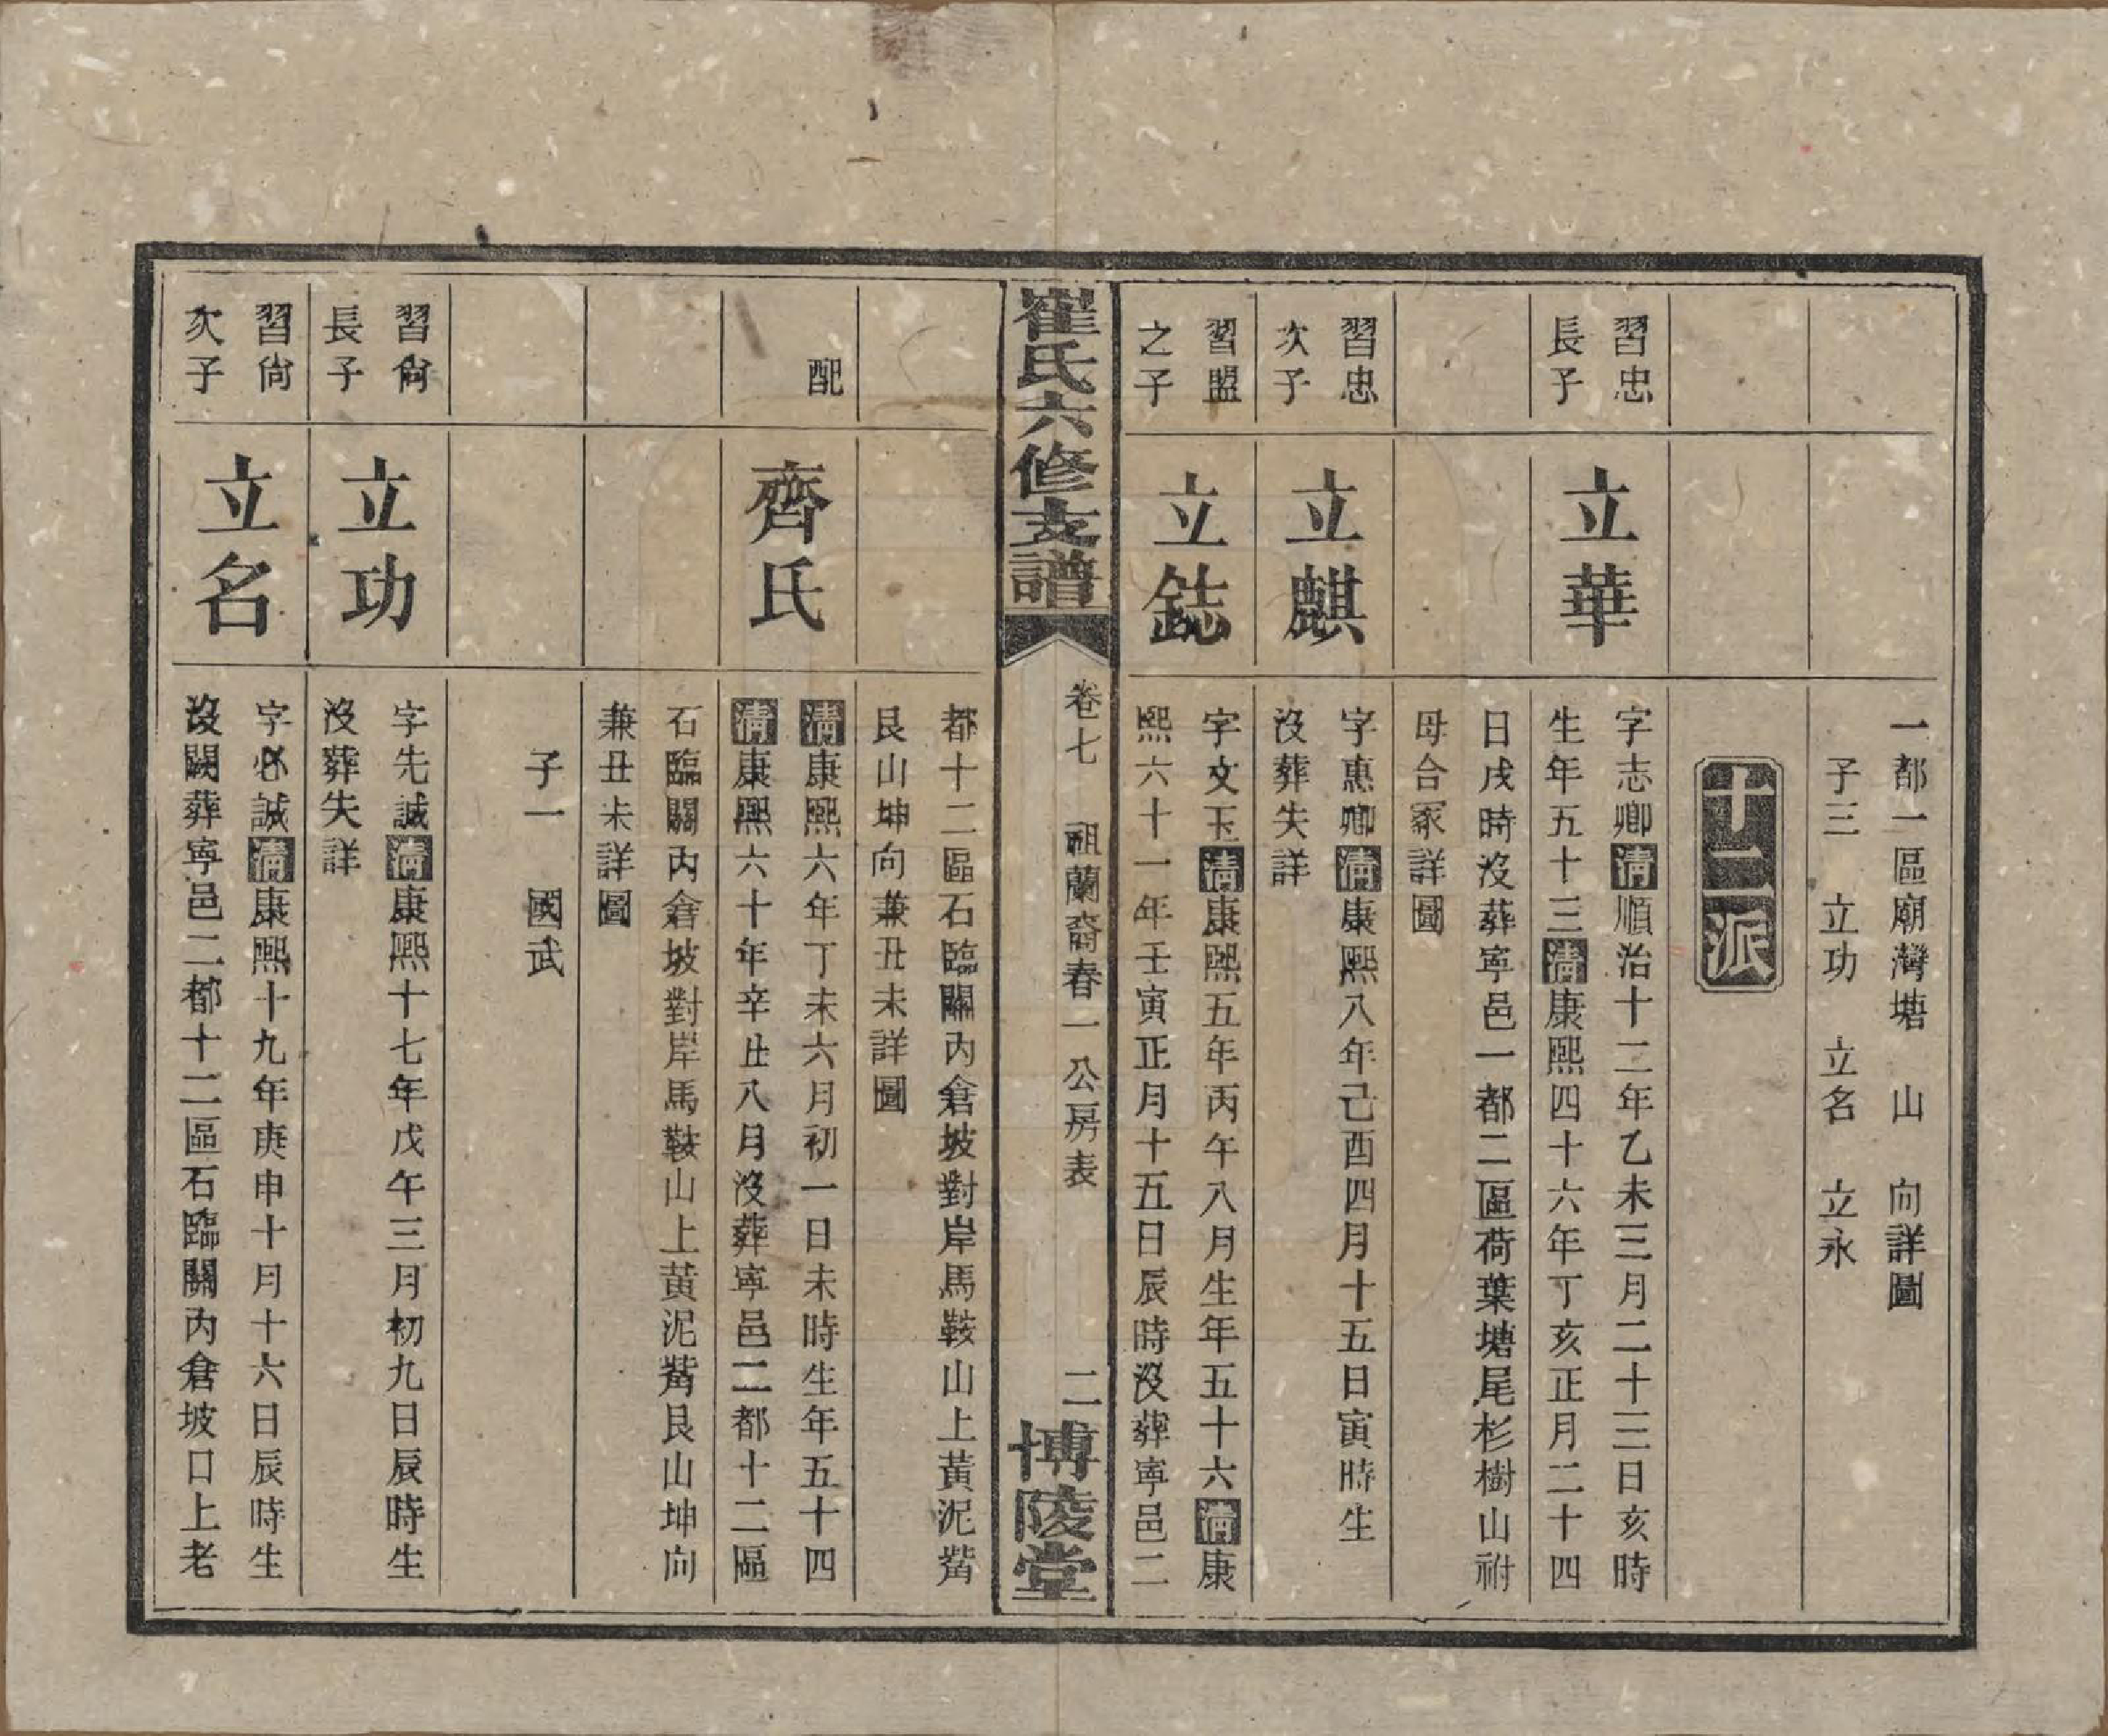 一都一區廟灣塘　山　向詳圖
子三　立功　立名　立永
十二派
習忠
長子
立華
字志卿清順治十二年乙未三月二十三日亥時
生年五十三清康熙四十六年丁亥正月二十四
日戌時沒葬寧邑一都二區荷葉塘尾杉樹山祔
母合冢詳圖
習忠
次子
立麒
字惠卿清康熙八年己酉四月十五日寅時生
沒葬失詳
習盟
之子
立鋕
字文玉清康熙五年丙午八月生年五十六清康
熙六十一年壬寅正月十五日辰時沒葬寧邑二
崔氏六修支譜
卷七　祖蘭裔春一公房表
二
博陵堂
都十二區石臨關內倉坡對岸馬鞍山上黃泥觜
艮山坤向兼丑未詳圖
配
齊氏
清康熙六年丁未六月初一日未時生年五十四
清康熙六十年辛丑八月沒葬寧邑二都十二區
石臨關內倉坡對岸馬鞍山上黃泥觜艮山坤向
兼丑未詳圖
子一　國武
習尙
長子
立功
字先誠清康熙十七年戊午三月初九日辰時生
沒葬失詳
習尙
次子
立名
字必誠清康熙十九年庚申十月十六日辰時生
沒闕葬寧邑二都十二區石臨關內倉坡口上老